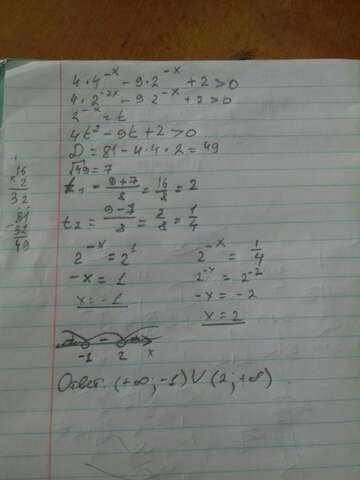 4·4^-x - 9·2^-x + 2 > 0
4·2^-2x - 9 2^-x + 2 > 0
2^-x = t
4t² - 9t + 2 > 0
D = 81 - 4·4·2 = 49
√49 = 7
t₁ = (9+7)/8 = 16/8 = 2
t₂ = (9-7)/8 = 2/8 = 1/4
16
× 2
32
81
- 32
49
2^-x = 2^1
-x = 1
x = -1
2^-x = 1/4
2^-x = 2^-2
-x = -2
x = 2
-
-1 2 x
Ответ: (+∞; -1) V (2; +∞)